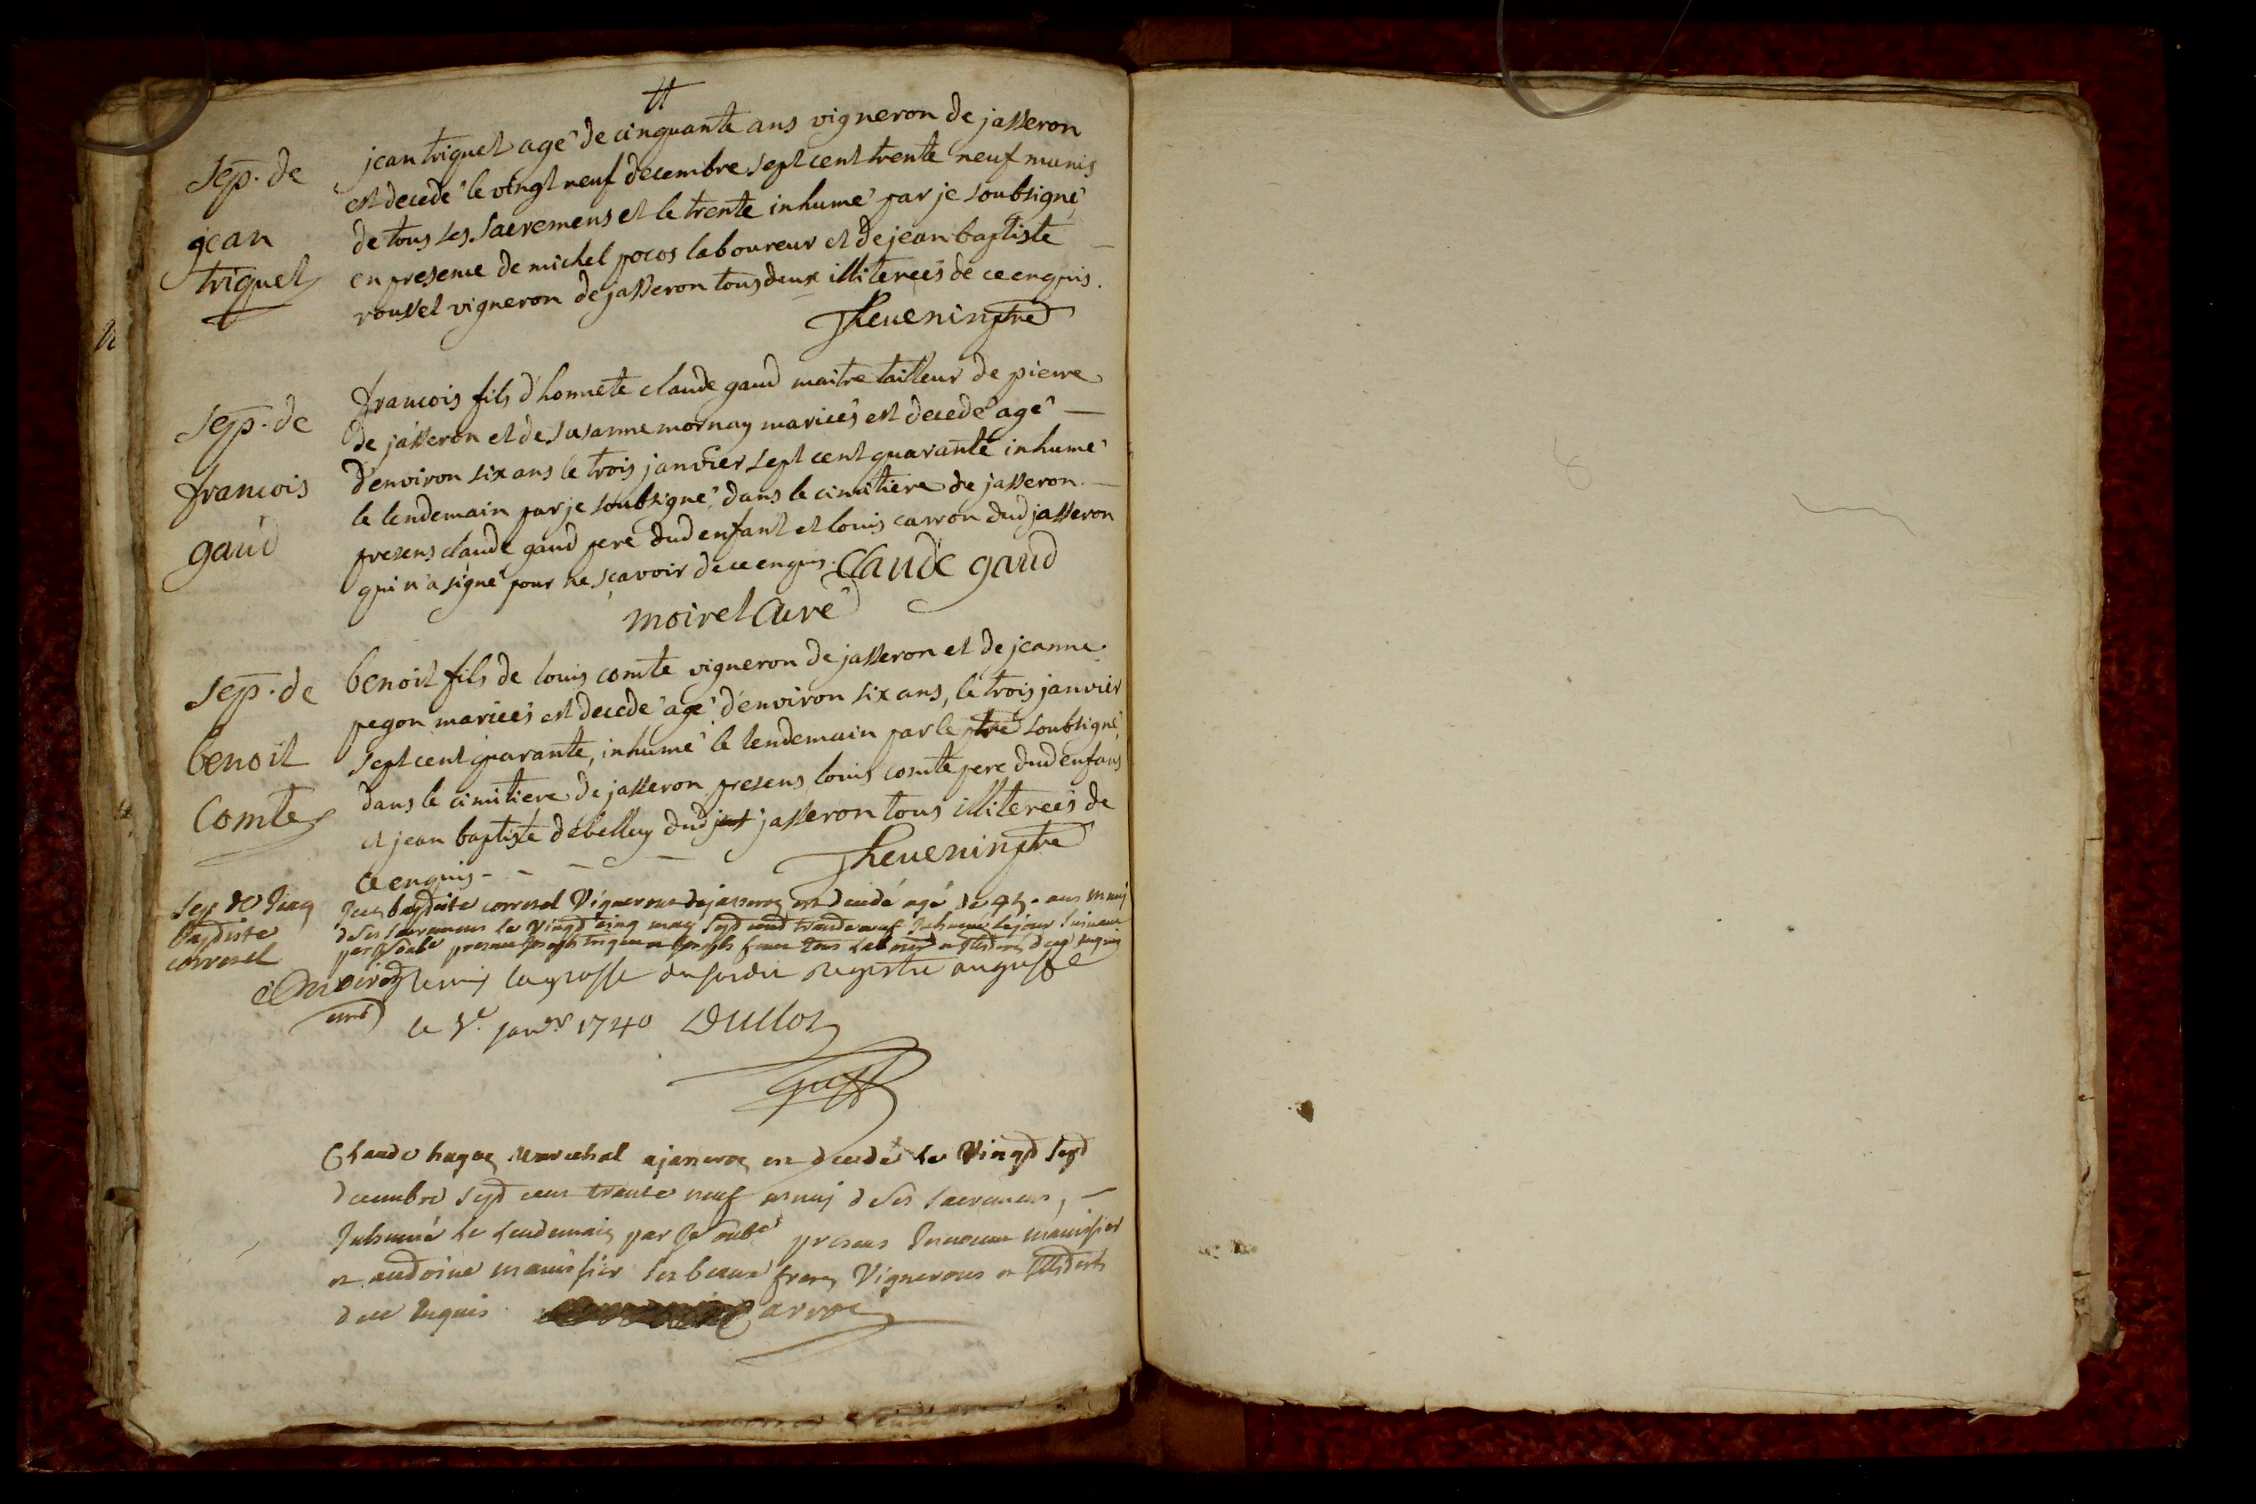 tt
Sep. de
jean
triquet
jean triquet agé de cinquante ans vigneron de jasseron
est decedé le vingt neuf decembre sept cent trente neuf munis
de tous ses sacremens et le trente inhumé par je soubsigné
en presence de michel pocos laboureur et de jean baptiste
roussel vigneron de jasseron tous deux illiterées de ce enquis.
Thevenin ptre
Sep. de
francois
gaud
francois fils d'honnete claude gaud maitre tailleur de pierre
de jasseron et de susanne mornay mariées est decedé agé
d'environ six ans le trois janvier sept cent quarante inhumé
le lendemain par je soubsigné dans le cimitiere de jasseron
presens claude gaud pere dud enfant et louis carron dud jasseron
qui n'a signé pour ne sçavoir de ce enquis. Claude gaud
moirel Curé
Sep. de
benoit
Comte
benoit fils de louis comte vigneron de jasseron et de jeanne
pegon mariées est decedé agé d'environ six ans, le trois janvier
sept cent quarante, inhumé le lendemain par le ptre soubsigné,
dans le cimitiere de jasseron presens louis comte pere dud enfans
et jean baptiste debelley dud jasseron tous illiterées de
ce enquis
Thevenin ptre
Sep de Jean
baptiste
corresel
Jean baptiste corresel Vigneron de jasseron est decedé agé de 45 ans muni
de ses sacremens le Vingt cinq may sept cent trente neuf Inhumé le jour suivant
par je soub.é presens joseph triquet et joseph tous
le greffe du susdit Registre au greffe
le 5e janer 1740 Dullot
Greff
Claude hugon Marechal a jasseron est decedé le Vingt sept
decembre sept cens trente neuf muni de ses sacremens,
Inhumé le lendemain par je soubé presens manissier
et andoine manissier ses beaux freres Vignerons et illiterés
de ce Enquis Carron